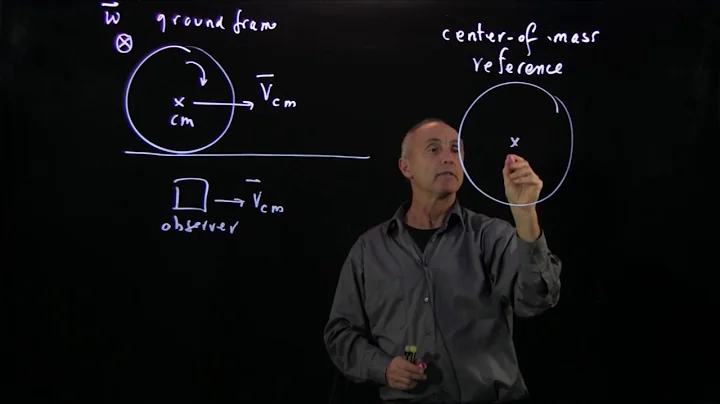 w⃗ ground frame
⊗
x V⃗cm
cm
V⃗cm
observer
center-of-mass
reference
x